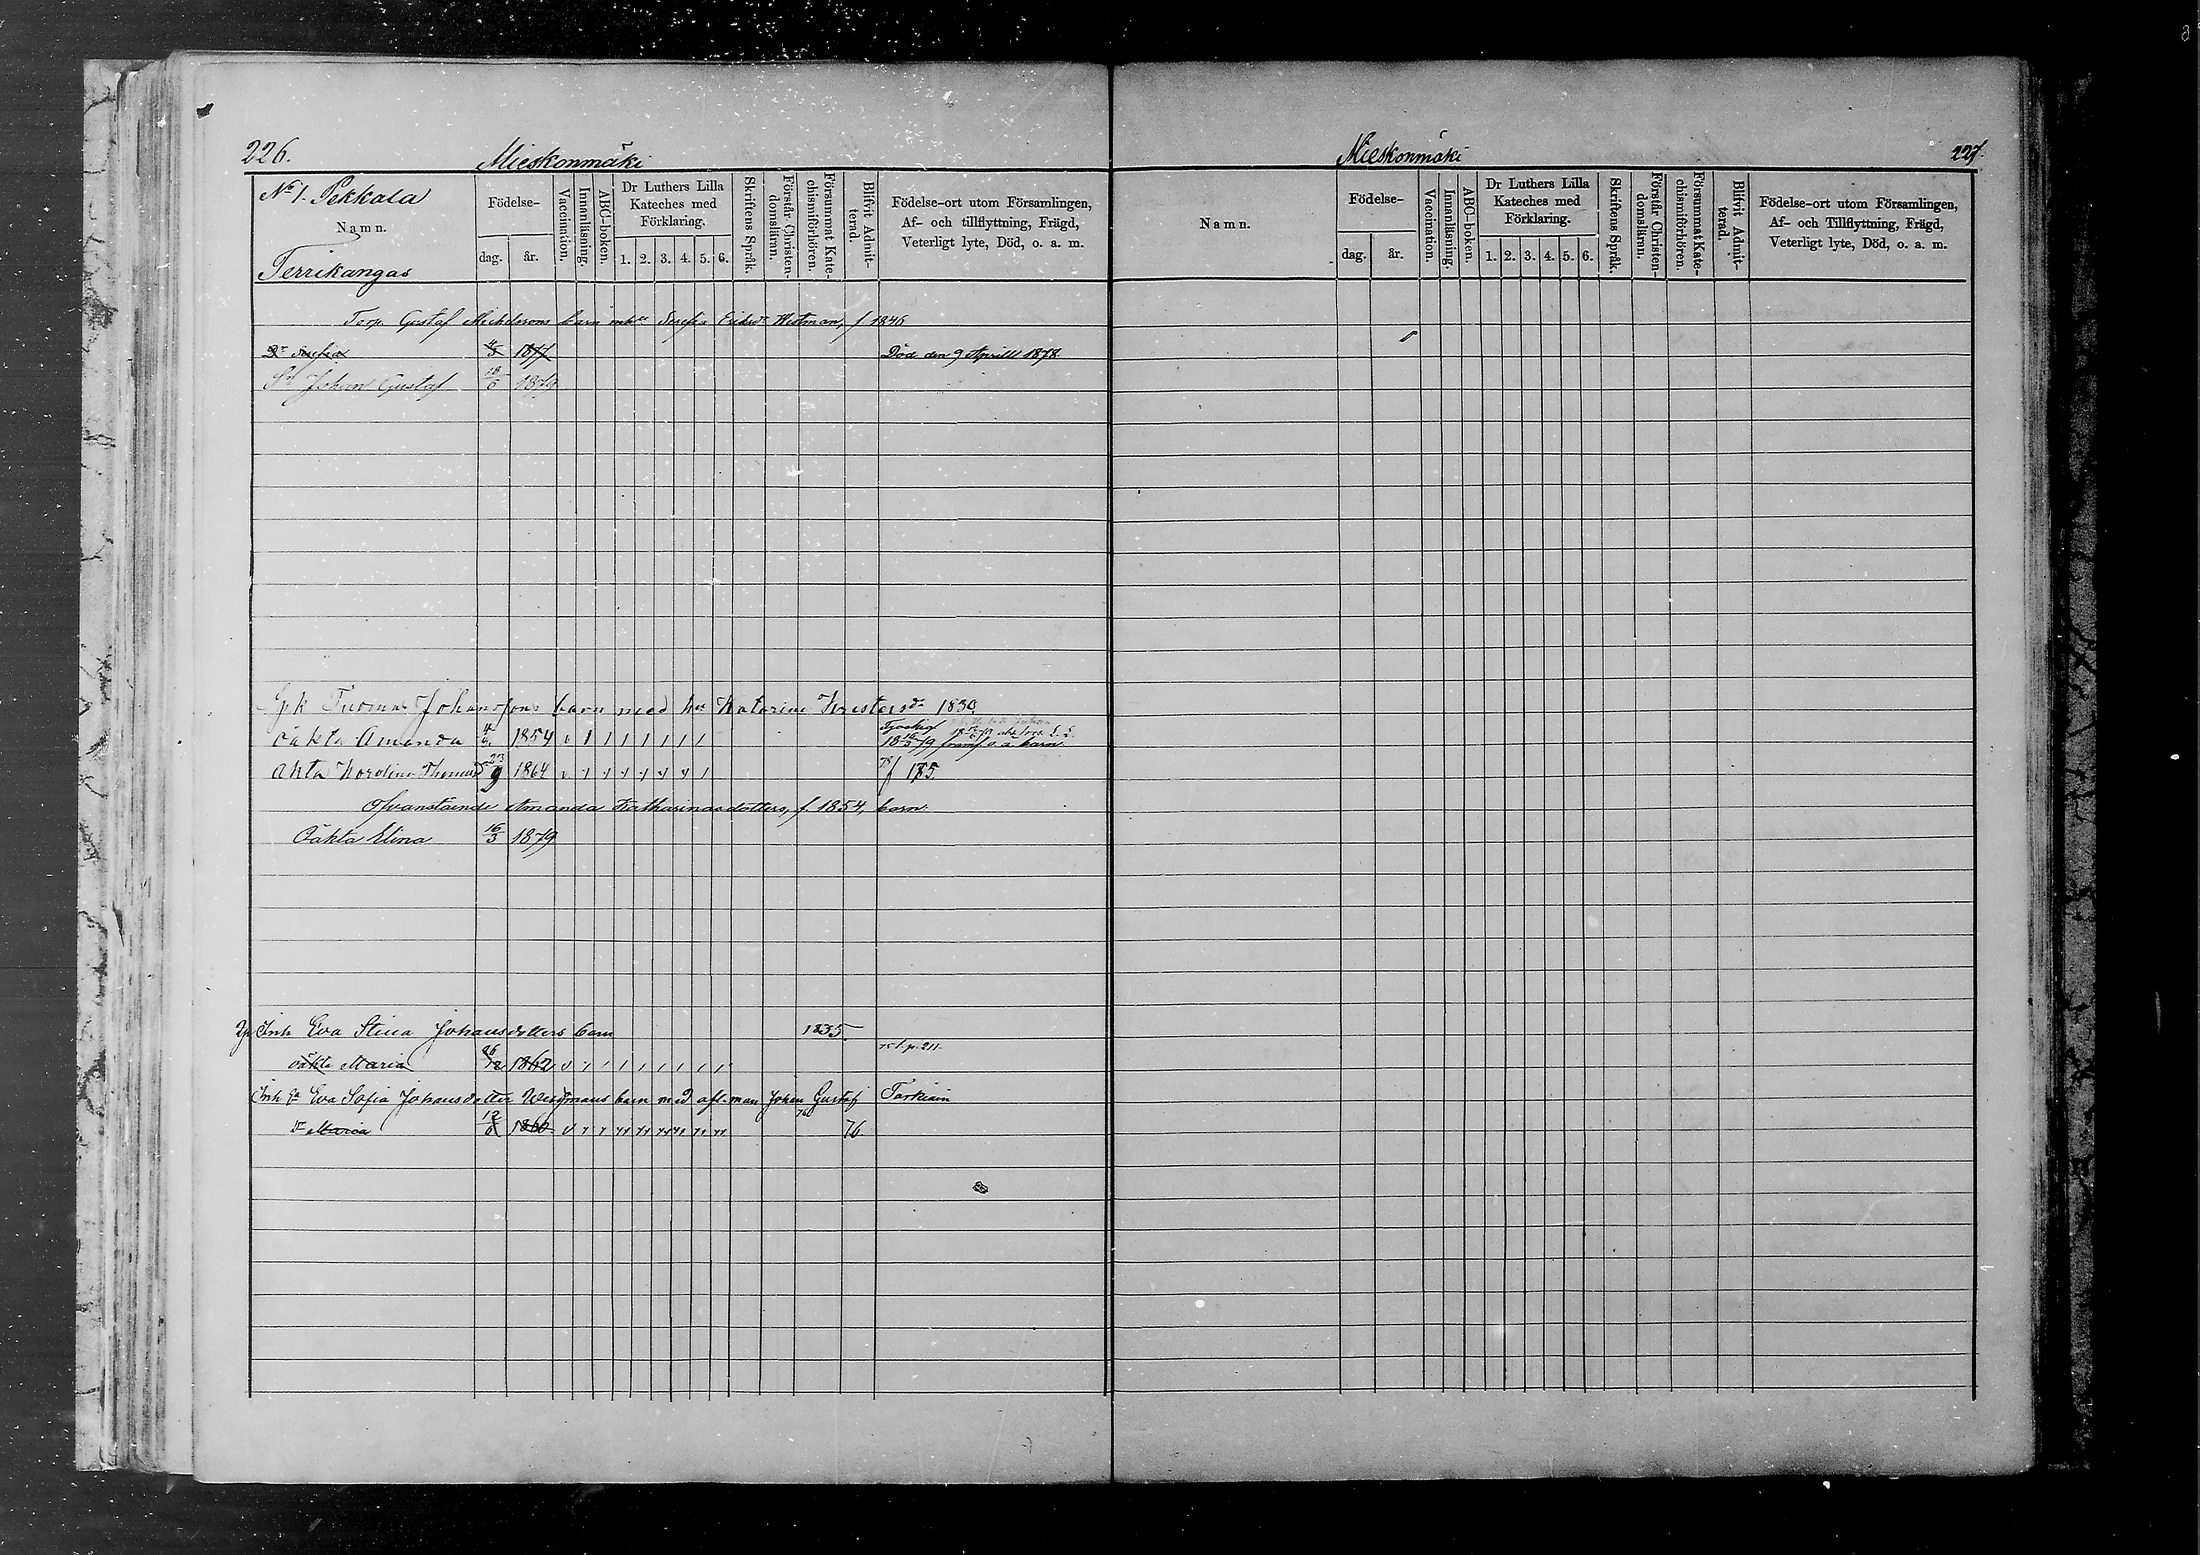 226.
Mieskonmäki
No 1. Pekkala
Namn.
Terrikangas
Födelse-
dag.
år.
Vaccination.
Innanläsning.
ABC-boken.
Dr Luthers Lilla
Kateches med
Förklaring.
1. 2. 3. 4. 5. 6.
Skriftens Språk.
Förstår Christen-
domsläran.
Försummat Kate-
chismiförhören.
Blifvit Admit-
terad.
Födelse-ort utom Församlingen,
Af- och tillflyttning, Frägd,
Veterligt lyte, Död, o. a. m.
Torp. Gustaf Michelssons barn m hu Serefia Eriksdr Westman, f. 1846
Dr Serefia 1877 Död den 9 Aprill 1878
Sn Johan Gustaf 18/6 1879
Spk Tuomas Johanssons barn med hu Katarina Kristersdr 1830
oäkta Amanda 1854
18 16/3 79 framf. o. ä. barn
äkta Karolina Thomasdr 23/9 1864
Ofvanstående Amanda Katharinasdotters, f. 1854, barn.
Oäkta Elina 16/3 1879
Inh Eva Stina Johansdotters barn 1835
oäkta Maria 26/12 1862 75 t. p. 211.
Inh Ea Eva Sofia Johansdotter Wegmans barn med afl. man Johan Gustaf Tarkiain
dr Maria 12/6 1860 76.
Mieskonmäki
227.
Namn.
Födelse-
dag.
år.
Vaccination.
Innanläsning.
ABC-boken.
Dr Luthers Lilla
Kateches med
Förklaring.
1. 2. 3. 4. 5. 6.
Skriftens Språk.
Förstår Christen-
domsläran.
Försummat Kate-
chismiförhören.
Blifvit Admit-
terad.
Födelse-ort utom Församlingen,
Af- och Tillflyttning, Frägd,
Veterligt lyte, Död, o. a. m.